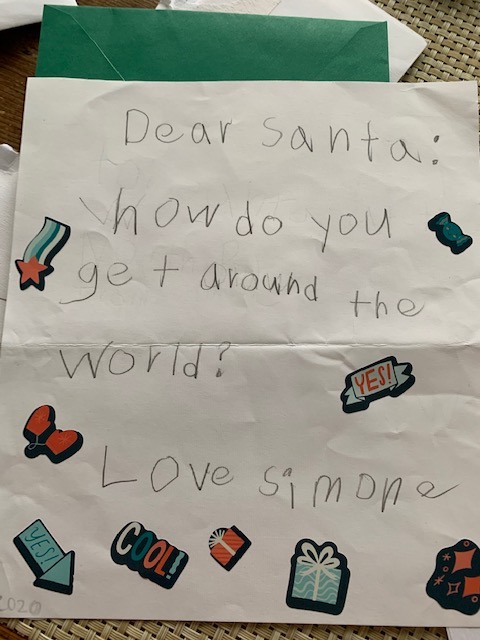 Dear Santa:
how do you
get around the
world?
YES!
Love simone
YES!
COOL!
2020